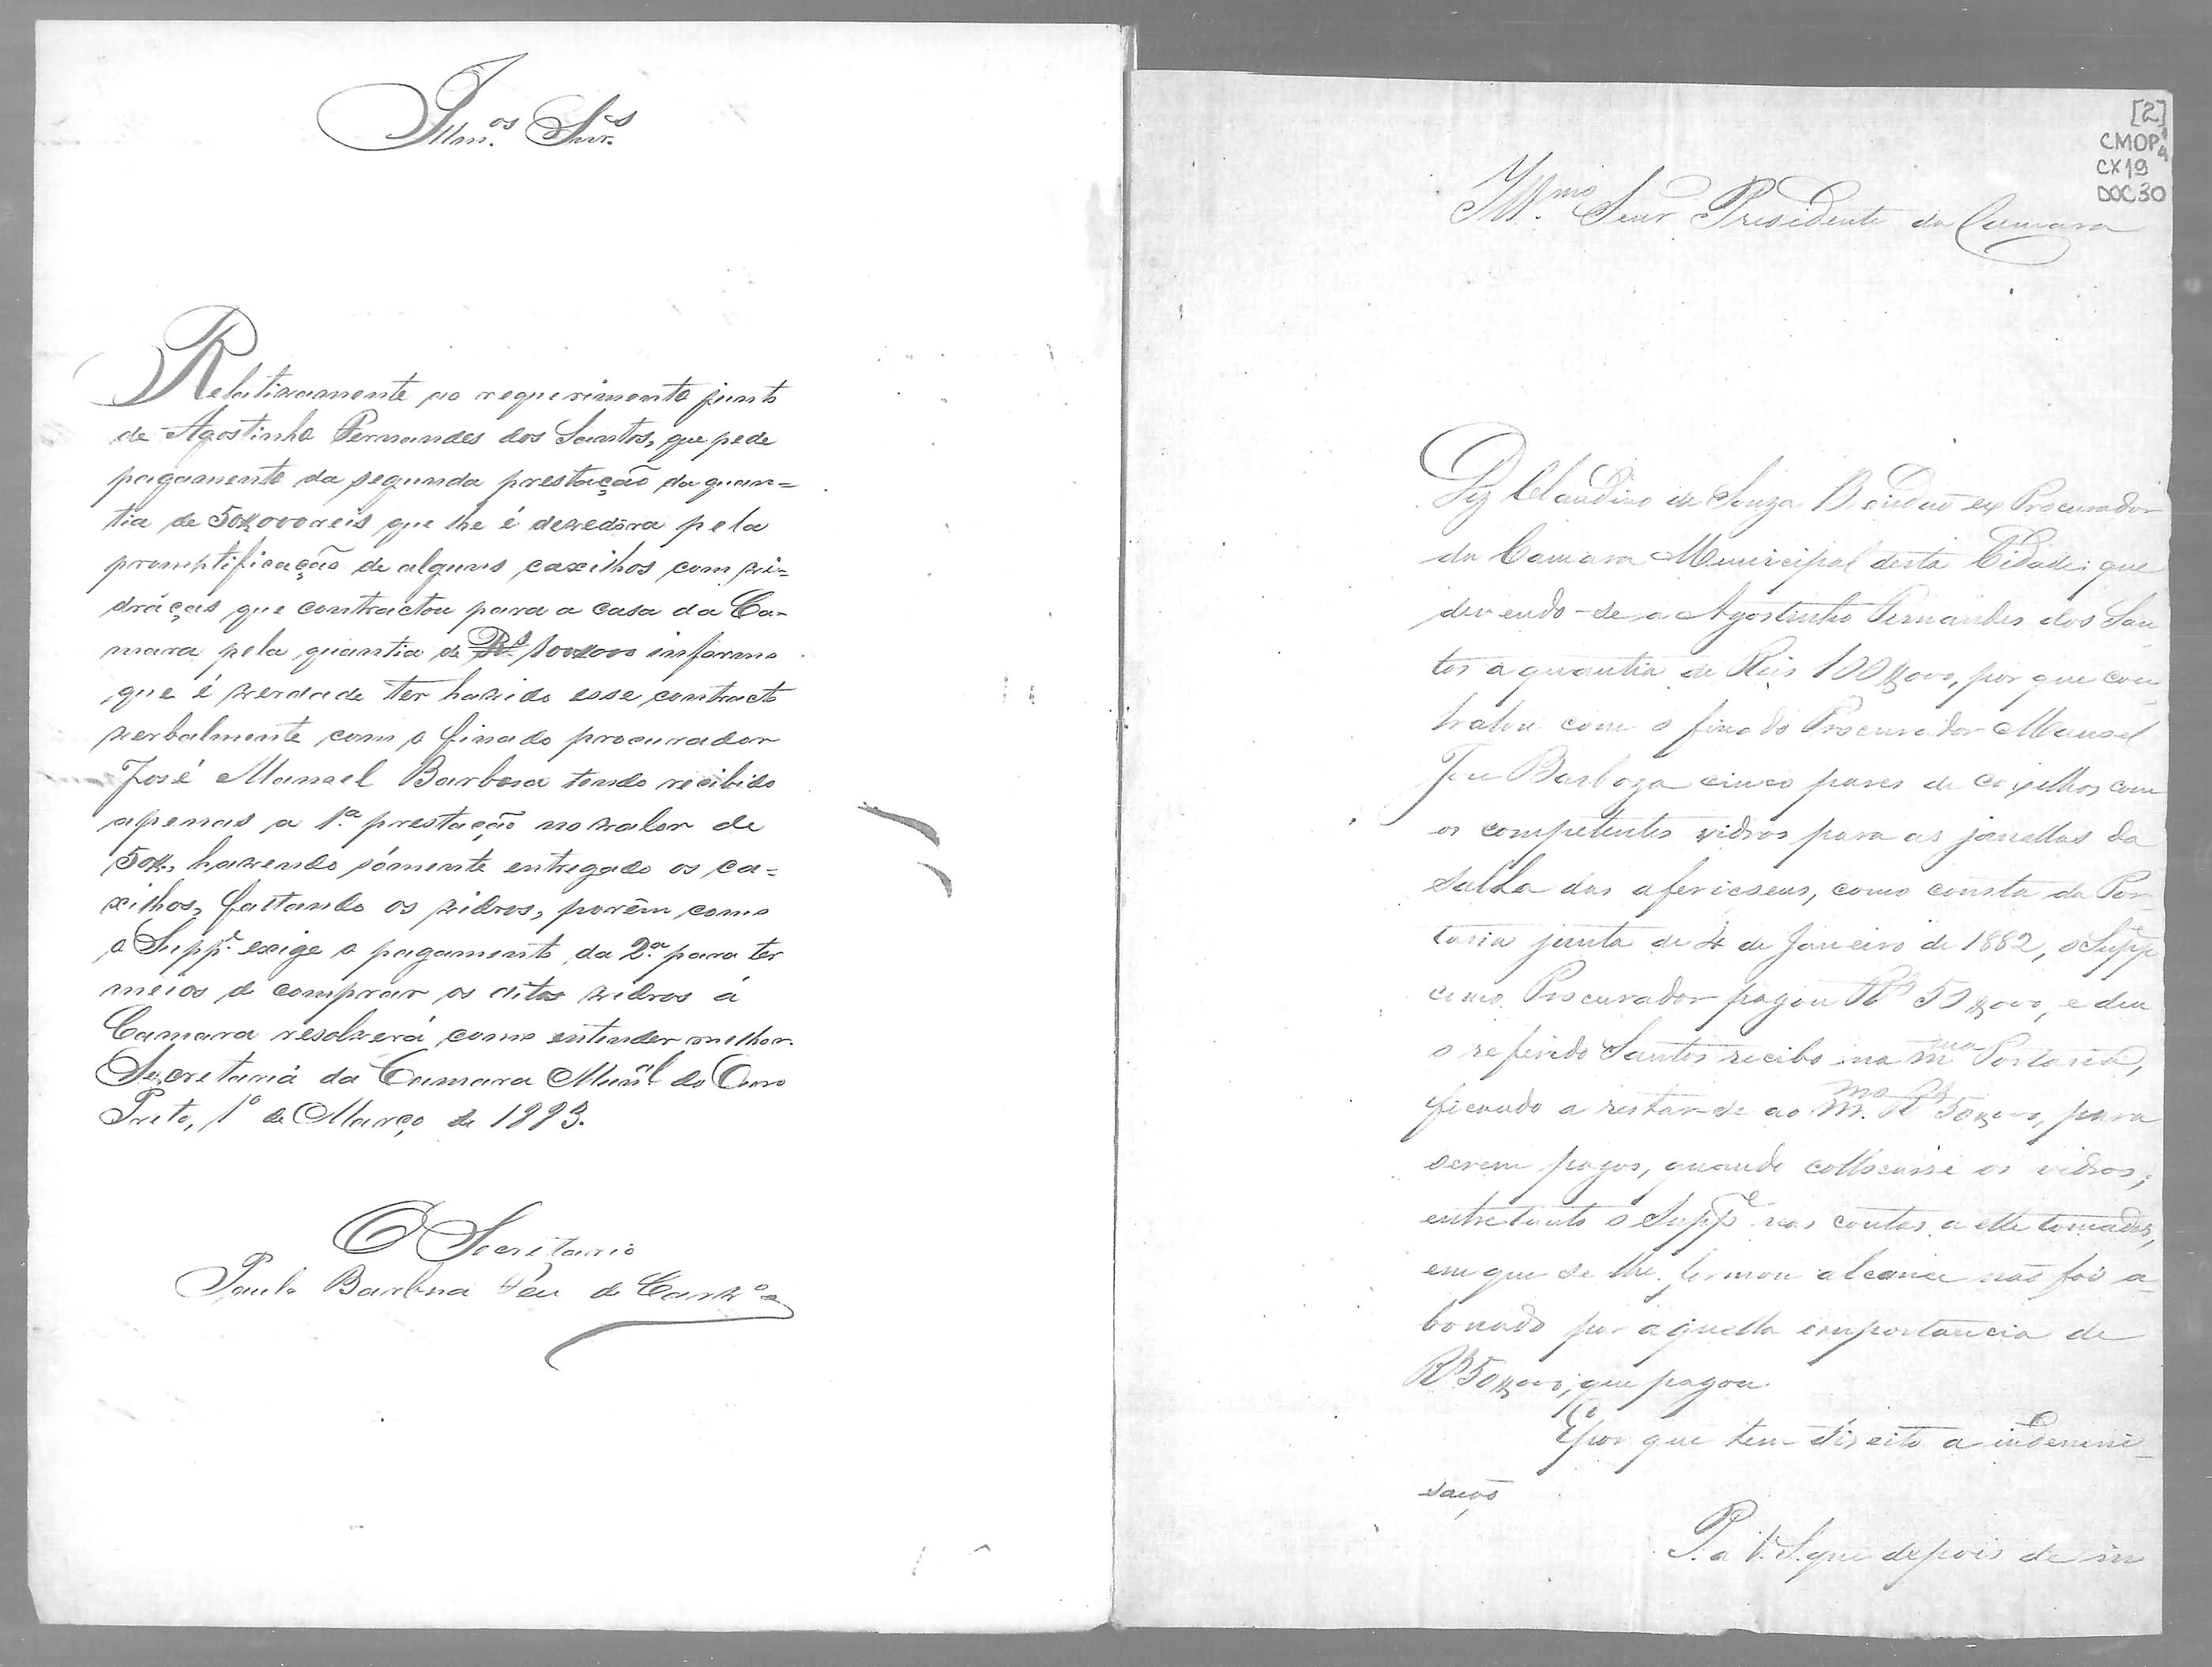 Illm.os Snr.s
Relativamente ao requerimento junto
de Agostinho Fernandes dos Santos, que pede
pagamento da segunda prestação da quan=
tia de 50$000 reis que lhe é devedora pela
promptificação de alguns caxilhos com vi=
draças que contractou para a casa da Ca-
mara pela quantia de Rs. 100$000 informo
que é verdade ter havido esse contracto
verbalmente com o finado procurador
José Manoel Barbosa tendo recibido
apenas a 1.a prestação no valor de
50$, havendo sómente entregado os ca=
xilhos, faltando os vidros, porêm como
o Supp.e exige o pagamento da 2.a para ter
meios de comprar os ditos vidros á
Camara resolverá como entender melhor.
Secretaria da Camara Mun.al do Ouro
Preto, 1º de Março de 1883.
O Secretario
Paulo Barbosa de Carv.o
[2]
CMOP
CX19
DOC30
Ill.mo Senr Presidente da Camara
Diz Claudino de Souza Brandão ex Procurador
da Camara Municipal desta Cidade; que
devendo-se a Agostinho Fernandes dos San
tos a quantia de Reis 100$000, por que con
tratou com o finado Procurador Manoel
José Barboza cinco pares de caxilhos com
os competentes vidros para as janellas da
Salla das afericoens, como consta da Por-
taria junta de 4 de Janeiro de 1882, o Supp.e
como Procurador pagou Rs 50$000, e deu
o referido Santos recibo na m.ma Portaria,
ficando a restar-se ao m.mo Rs 50$000, para
serem pagos, quando collocasse os vidros;
entretanto o Supp.e nas contas a elle tomadas,
em que se lhe formou alcance não foi a-
bonado por aquella importancia de
Rs 50$000, que pagou
E por que tem direito a indemni-
sação
P. a V. S. que depois de in